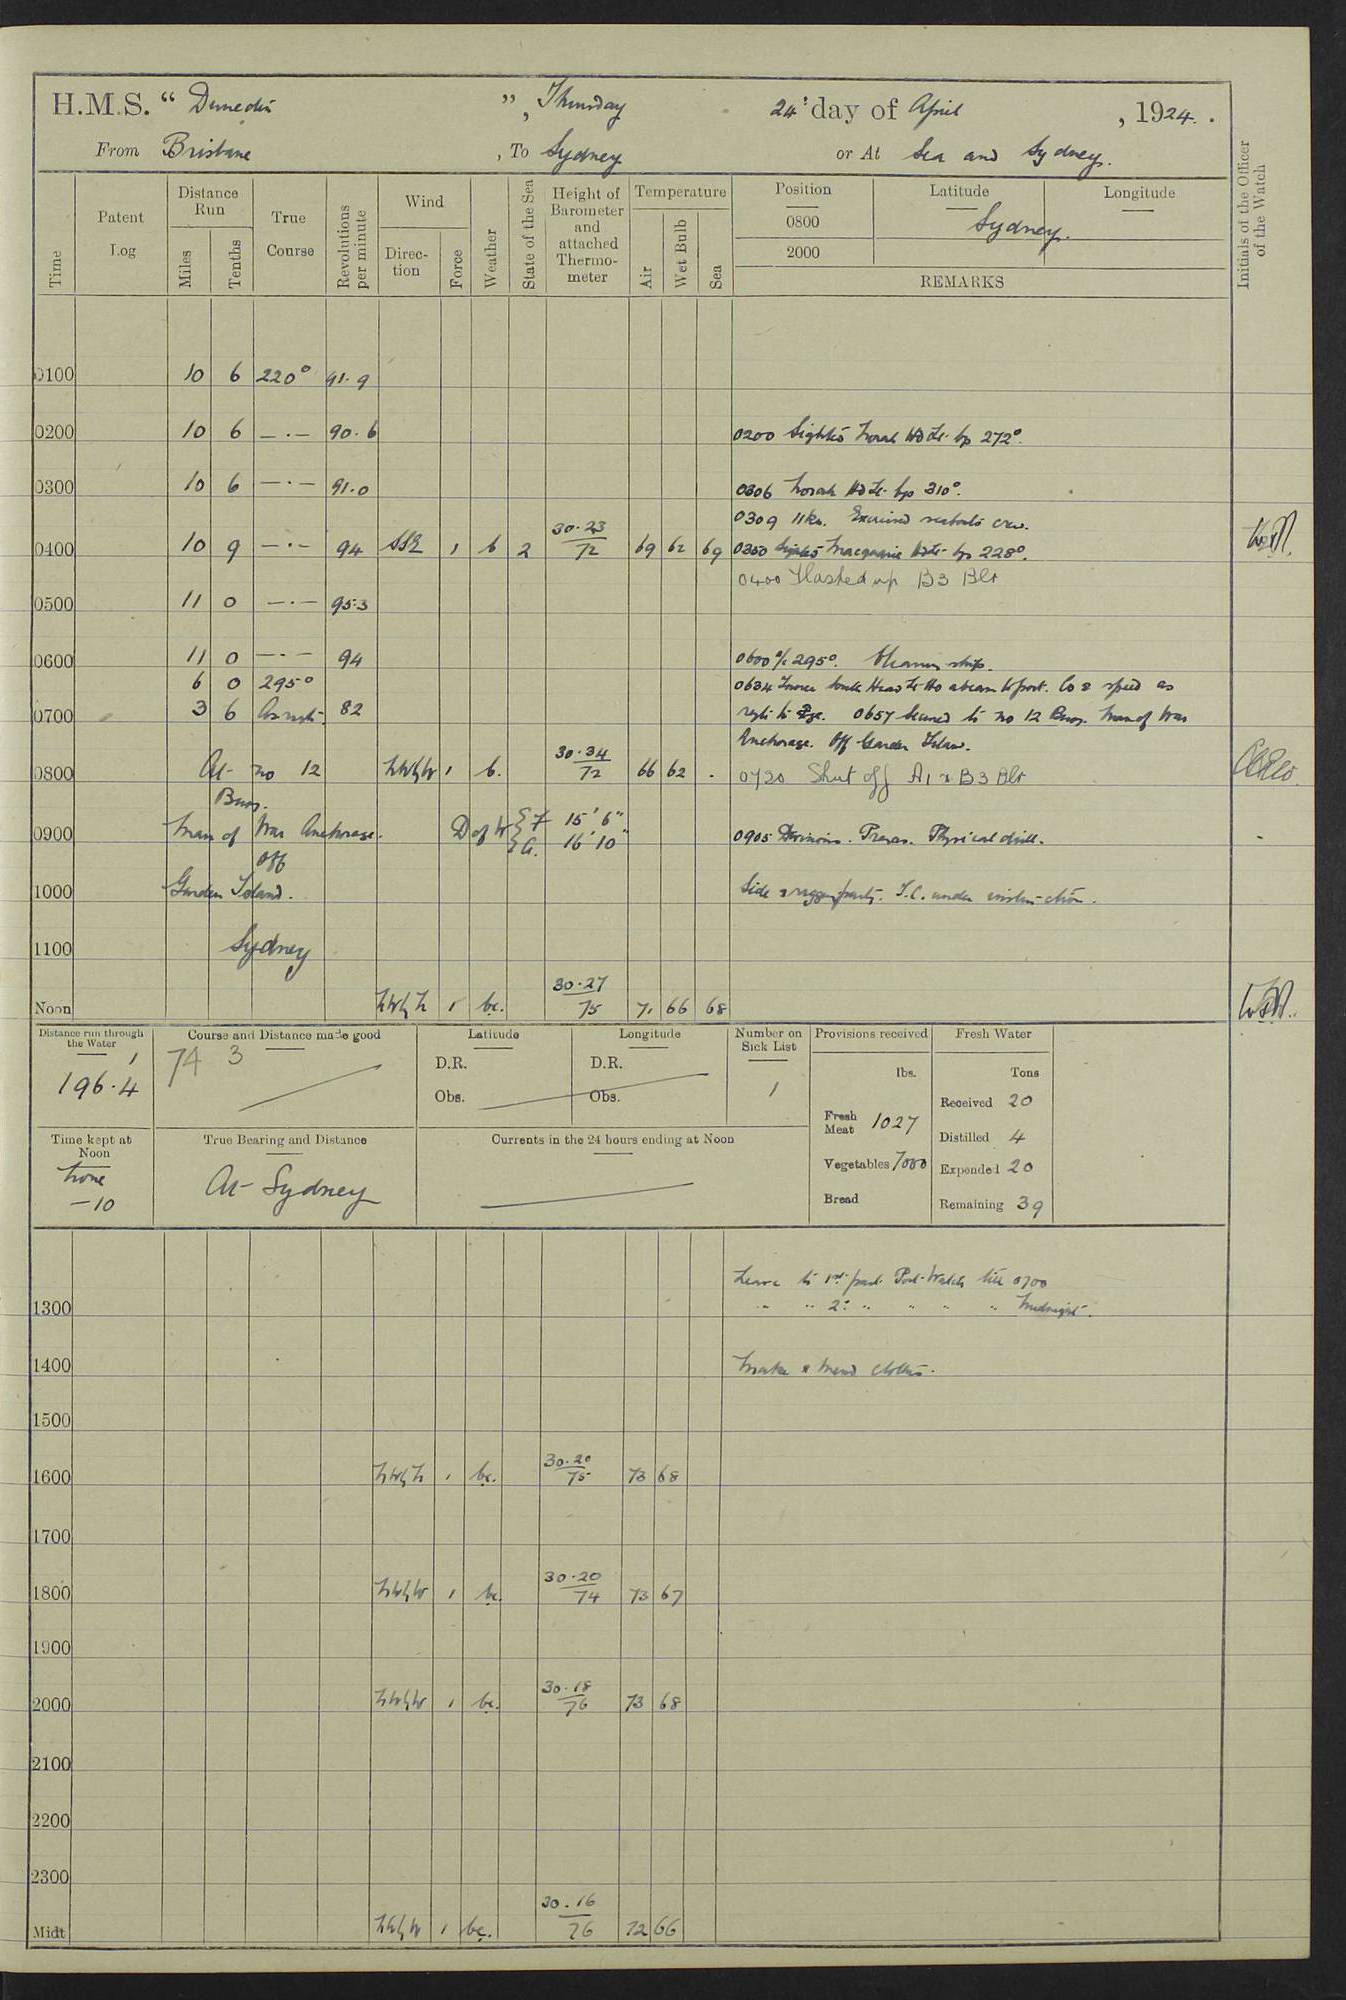 H.M.S. “ Dunedin ”, Thursday 24th day of April , 1924.
From Brisbane , To Sydney or At Sea and Sydney.
Time
Patent Log
Distance Run
Miles
Tenths
True Course
Revolutions per minute
Wind
Direction
Force
Weather
State of the Sea
Height of Barometer and attached Thermometer
Temperature
Air
Wet Bulb
Sea
Position
0800
2000
Latitude
Longitude
Sydney.
REMARKS
Initials of the Officer of the Watch
0100 10 6 220° 91.9
0200 10 6 —.— 90.6 0200 Sighted Norah Hd Lt. bg 272°.
0300 10 6 —.— 91.0 0306 Norah Hd Lt. bg 310°.
0309 11 kn. Exercised seaboats crew.
0400 10 9 —.— 94 SSE 1 b 2 30.23 72 69 62 69 0350 Sighted Macquarie Lt. bg 228°.
0400 Flashed up B3 Blr
0500 11 0 —.— 95.3
0600 11 0 —.— 94 0600 a/c 295°. Cleaning ship.
6 0 295° 0634 South Head Lt Ho abeam to port. Co & speed as
0700 3 6 As reqte. 82 reqte to 0657 Secured to No 12 Buoy. Man of War
Anchorage. Off Garden Island.
0800 At No 12 NW/W 1 b. 30.34 72 66 62 . 0720 Shut off A1 & B3 Blr
Buoy.
0900 Man of War Anchorage. D of W F 15' 6" A. 16' 10" 0905 Divisions. Prayers. Physical drill.
off
1000 Garden Island. Side & rigging party. T.C. under instruction.
1100 Sydney
Noon 1 bc. 30.27 75 71 66 68
Distance run through the Water
196.4
Course and Distance made good
74 3
Latitude
D.R.
Obs.
Longitude
D.R.
Obs.
Number on Sick List
1
Provisions received
lbs.
Fresh Meat 1027
Vegetables 7000
Bread
Fresh Water
Tons
Received 20
Distilled 4
Expended 20
Remaining 39
Time kept at Noon
Zone
-10
True Bearing and Distance
At Sydney
Currents in the 24 hours ending at Noon
Leave to 1st part Port Watch till 0700
1300 " " 2nd " " " " Midnight.
1400 Make & Mend clothes.
1500
1600 1 bc. 30.20 75 73 68
1700
1800 1 bc. 30.20 74 73 67
1900
2000 1 bc. 30.18 76 73 68
2100
2200
2300
Midt 1 bc. 30.16 76 72 66